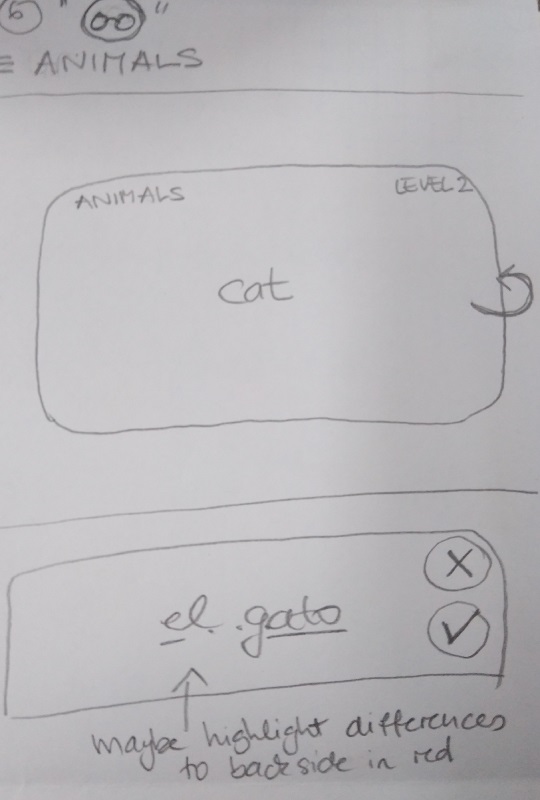 ANIMALS
ANIMALS LEVEL 2
cat
el gato
maybe highlight differences
to backside in red